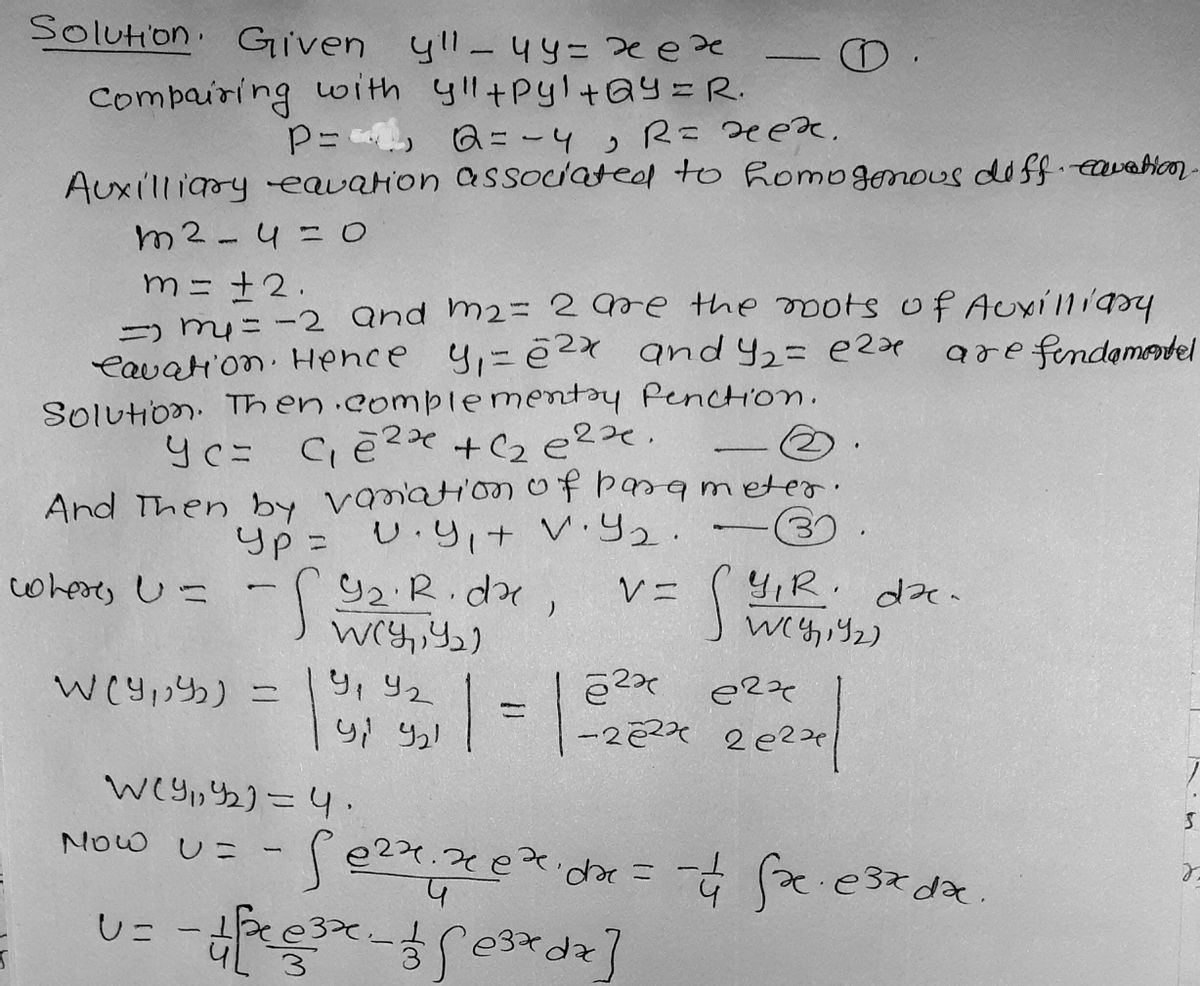 Solution. Given y'' - 4y = x e^x — ①.
Compairing with y'' + Py' + Qy = R.
P = , Q = -4 , R = x e^x.
Auxilliary equation associated to homogenous diff. equation.
m^2 - 4 = 0
m = ±2.
=> m₁ = -2 and m₂ = 2 are the roots of Auxilliary
equation. Hence y₁ = e^-2x and y₂ = e^2x are fundamentel
Solution. Then complementry function.
y c = C₁ e^-2x + C₂ e^2x. — ②.
And Then by variation of parameter.
yp = U·y₁ + V·y₂. — ③.
where, U = - ∫ y₂·R·dx / W(y₁,y₂) , V = ∫ y₁R· / W(y₁,y₂) dx.
W(y₁,y₂) = | y₁ y₂ ; y₁' y₂' | = | e^-2x e^2x ; -2e^-2x 2e^2x |
W(y₁,y₂) = 4.
Now U = - ∫ e^2x·x e^x·dx / 4 = -1/4 ∫ x·e^3x dx.
U = -1/4 [ x e^3x / 3 - 1/3 ∫ e^3x dx ]